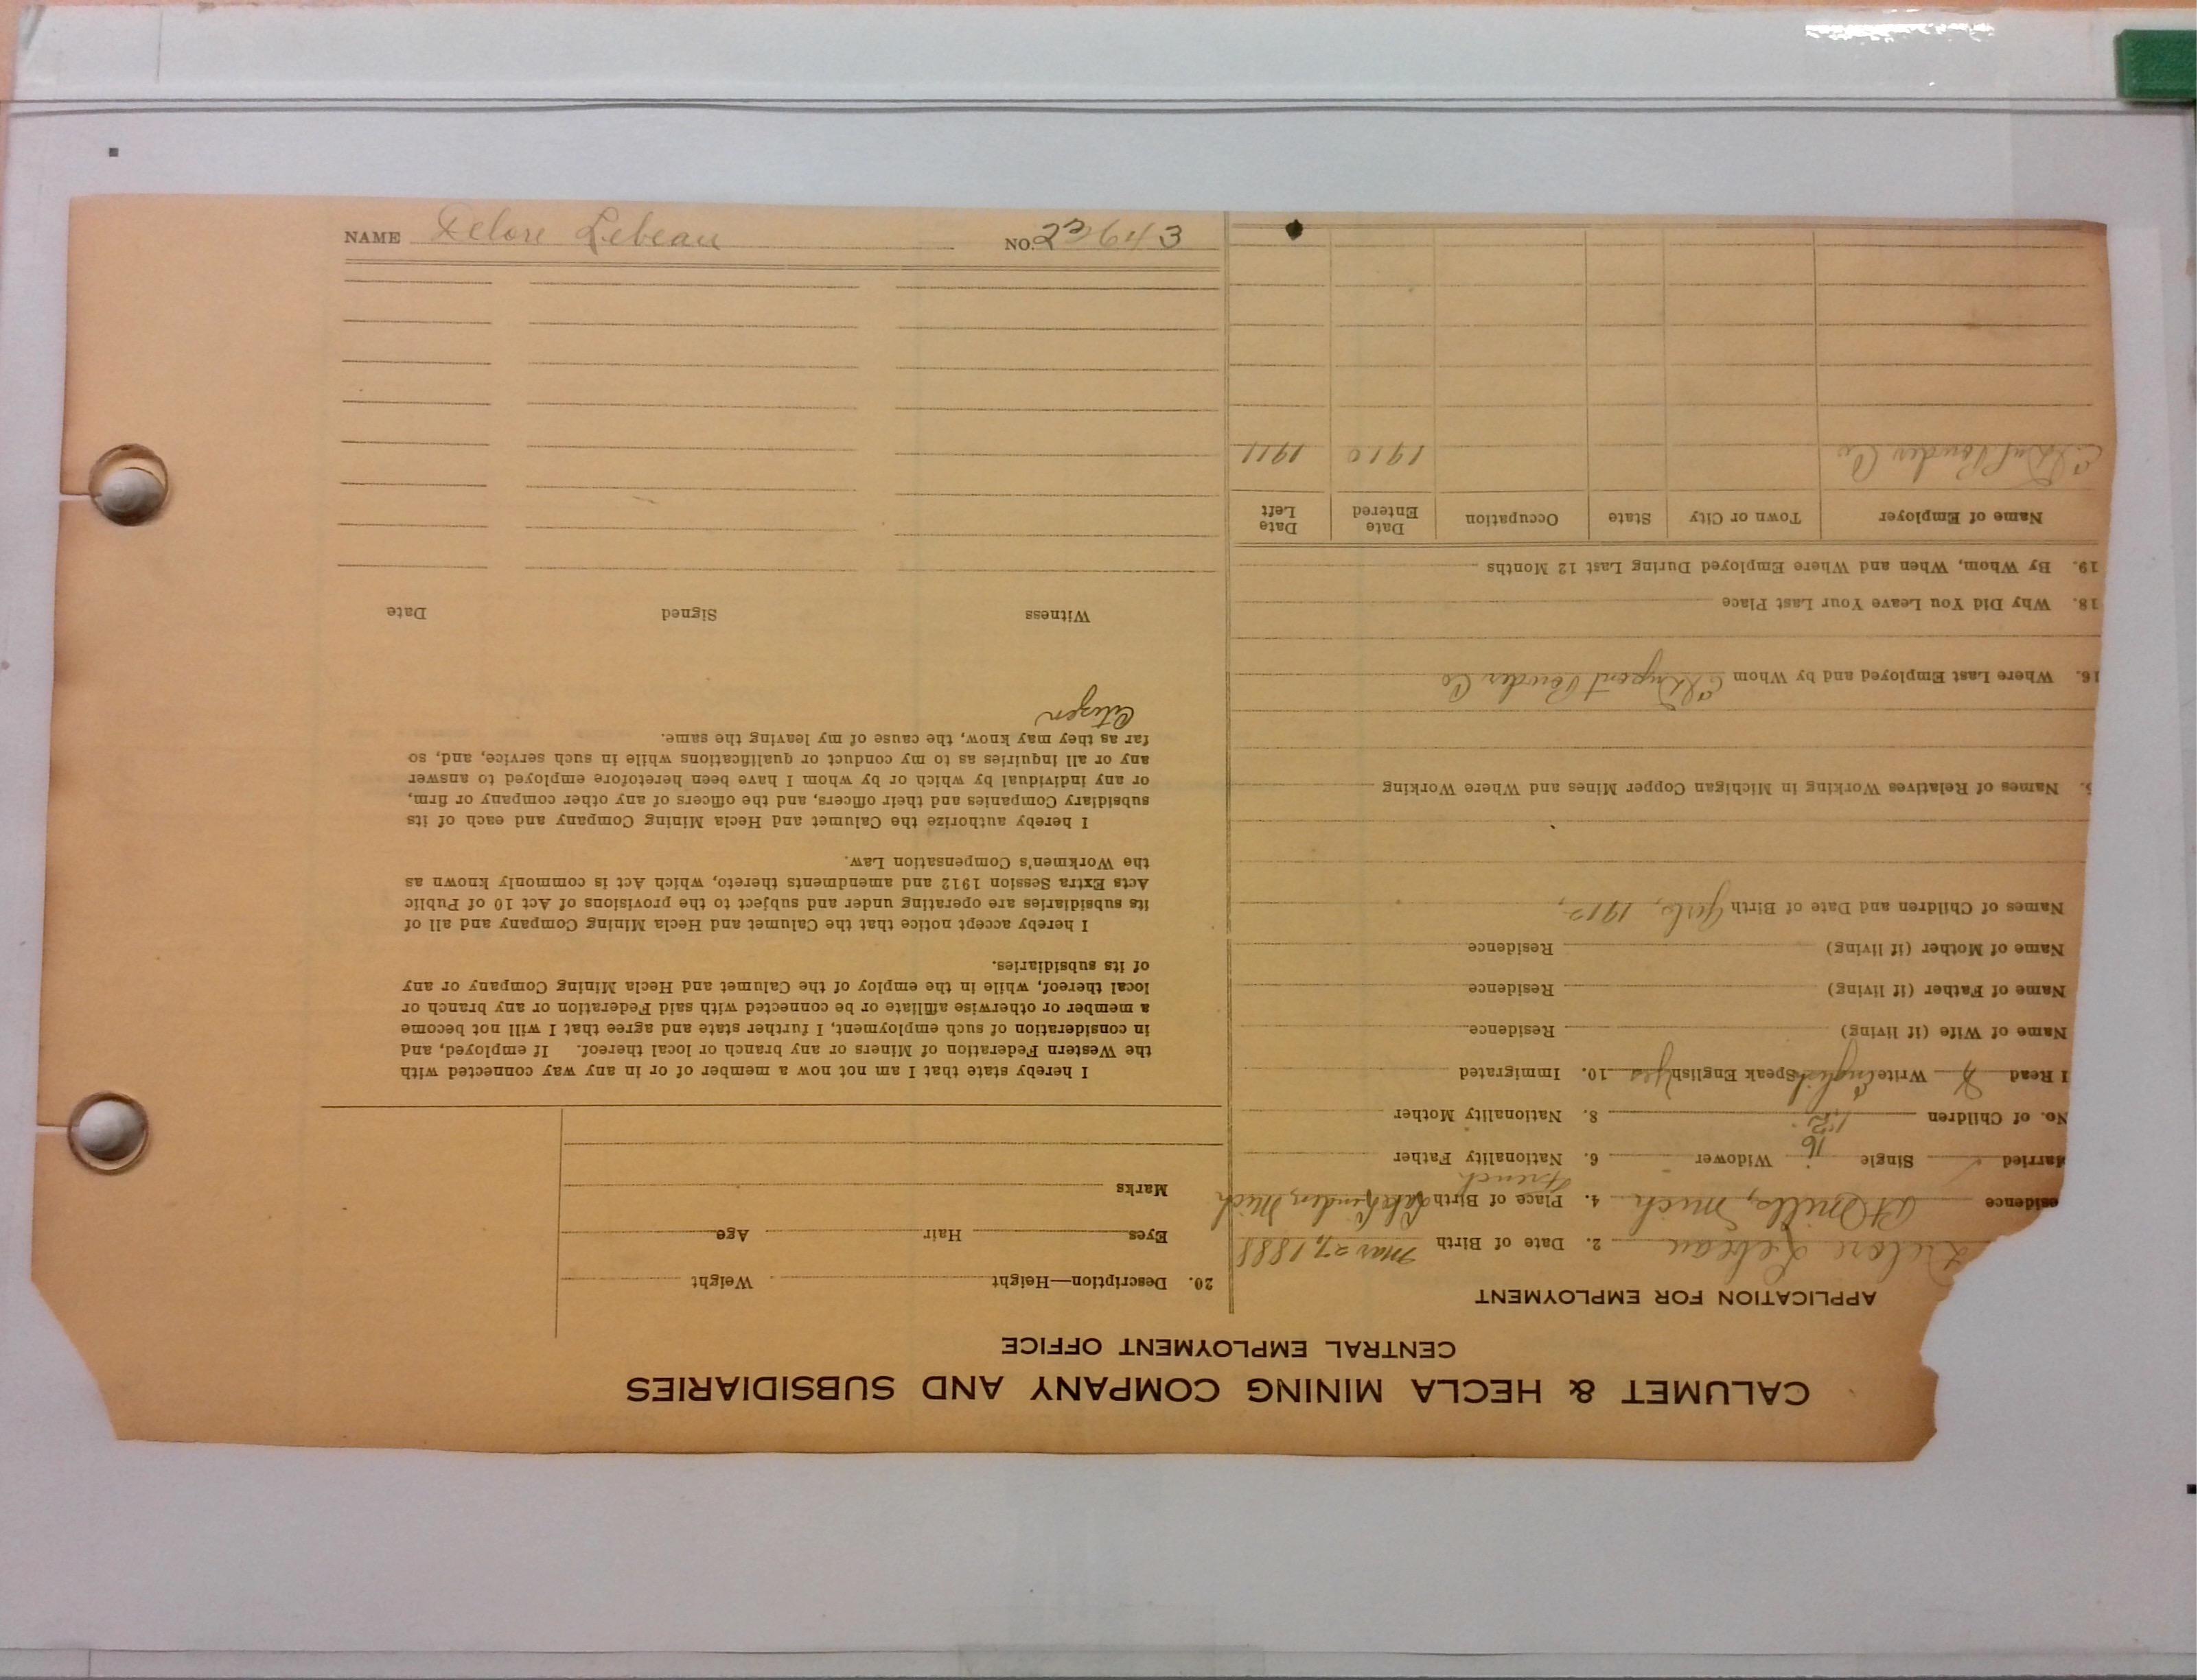 CALUMET & HECLA MINING COMPANY AND SUBSIDIARIES
CENTRAL EMPLOYMENT OFFICE
APPLICATION FOR EMPLOYMENT
Delore Lebeau 2. Date of Birth Mar 27, 1888
esidence Pt Mills, Mich 4. Place of Birth Lake Linden, Mich
French
Married Single Widower 6. Nationality Father
16
No. of Children 8. Nationality Mother
I Read Write English Speak English yes 10. Immigrated
Name of Wife (if living) Residence
Name of Father (if living) Residence
Name of Mother (if living) Residence
Names of Children and Date of Birth Girls, 1912,
5. Names of Relatives Working in Michigan Copper Mines and Where Working
16. Where Last Employed and by Whom Dupont Powder Co
18. Why Did You Leave Your Last Place
19. By Whom, When and Where Employed During Last 12 Months
Name of Employer Town or City State Occupation Date Entered Date Left
Powder Co 1910 1911
20. Description—Height Weight
Eyes Hair Age
Marks
I hereby state that I am not now a member of or in any way connected with
the Western Federation of Miners or any branch or local thereof. If employed, and
in consideration of such employment, I further state and agree that I will not become
a member or otherwise affiliate or be connected with said Federation or any branch or
local thereof, while in the employ of the Calumet and Hecla Mining Company or any
of its subsidiaries.
I hereby accept notice that the Calumet and Hecla Mining Company and all of
its subsidiaries are operating under and subject to the provisions of Act 10 of Public
Acts Extra Session 1912 and amendments thereto, which Act is commonly known as
the Workmen's Compensation Law.
I hereby authorize the Calumet and Hecla Mining Company and each of its
subsidiary Companies and their officers, and the officers of any other company or firm,
or any individual by which or by whom I have been heretofore employed to answer
any or all inquiries as to my conduct or qualifications while in such service, and, so
far as they may know, the cause of my leaving the same.
Citizen
Witness Signed Date
NAME Delore Lebeau NO. 22643